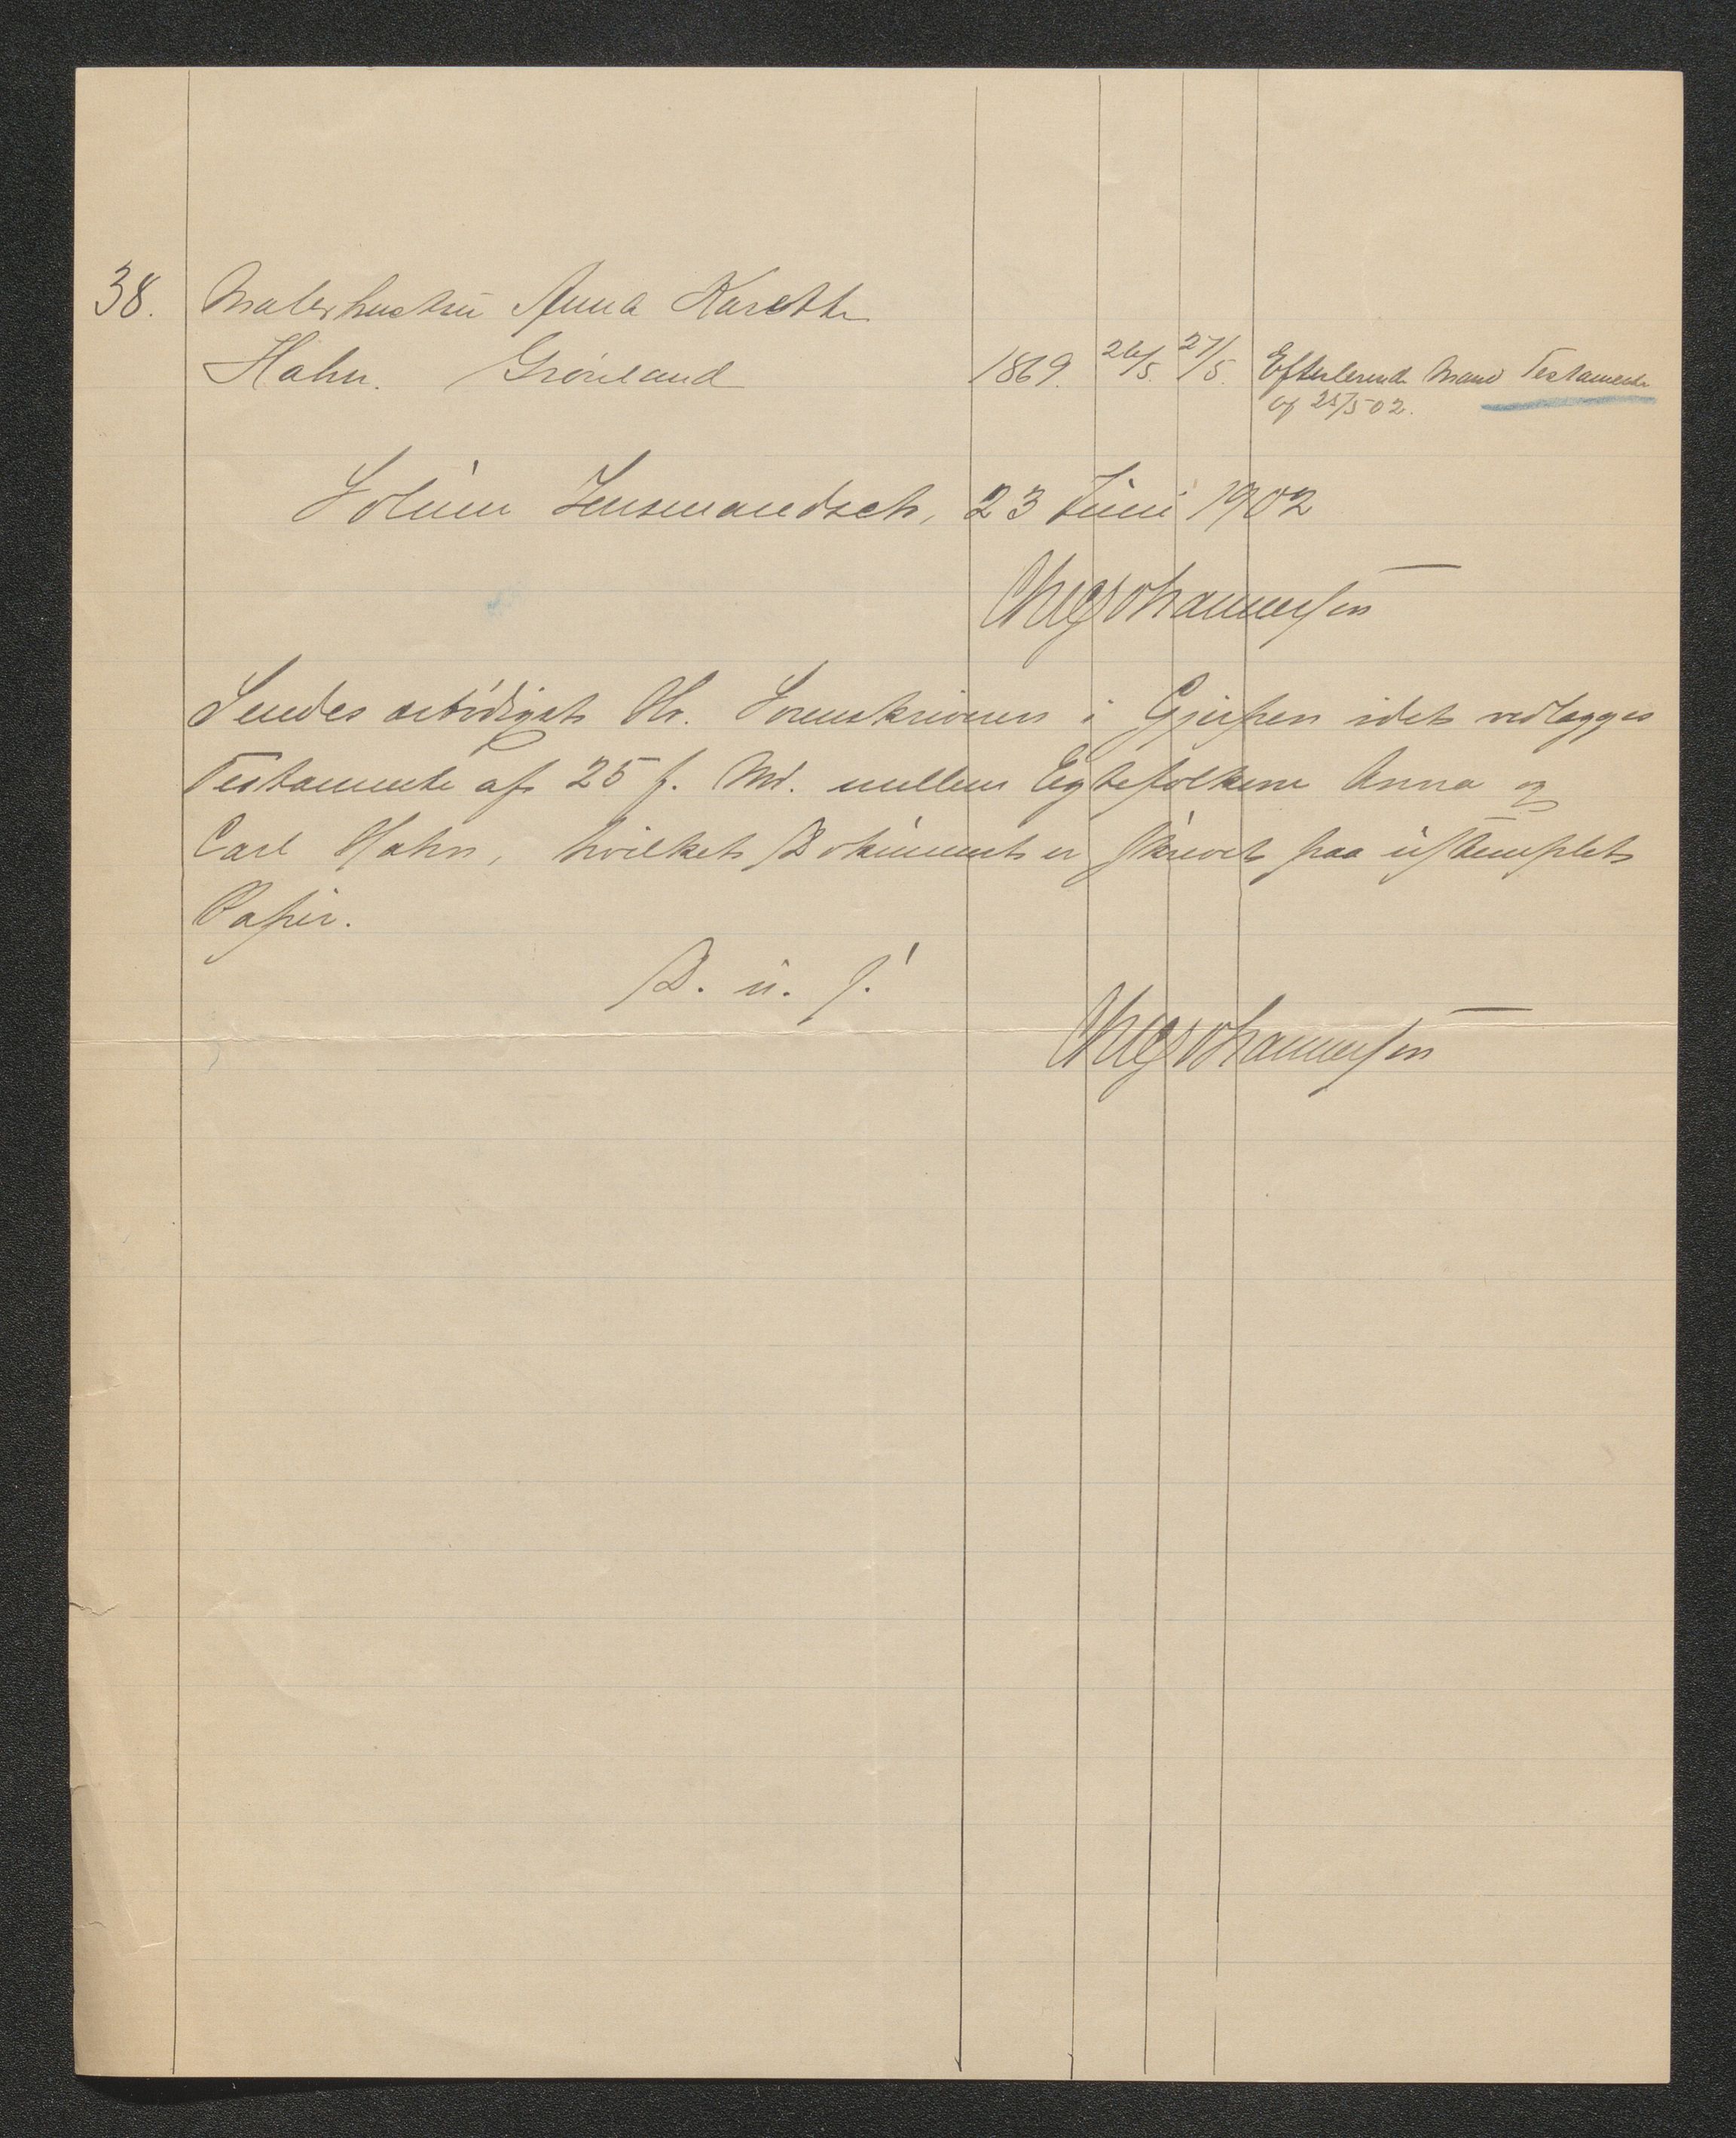 38. Malerhustru Anna Karethe
Hahn. Grönland 1869. 26/5. 27/5. Efterlevende Mand Testamente
af 25/5 02.
Solum Lensmandsch, 23 Juni 1902
Chr Johannessen
Sendes ærbödigst Hr. Sorenskriveren i Gjerpen idet vedlægges
Testamente af 25 f. Md. mellem Egtefolkene Anna og
Carl Hahn, hvilket Dokument er skrevet paa ustemplet
Papir.
D. u. s.
Johannessen